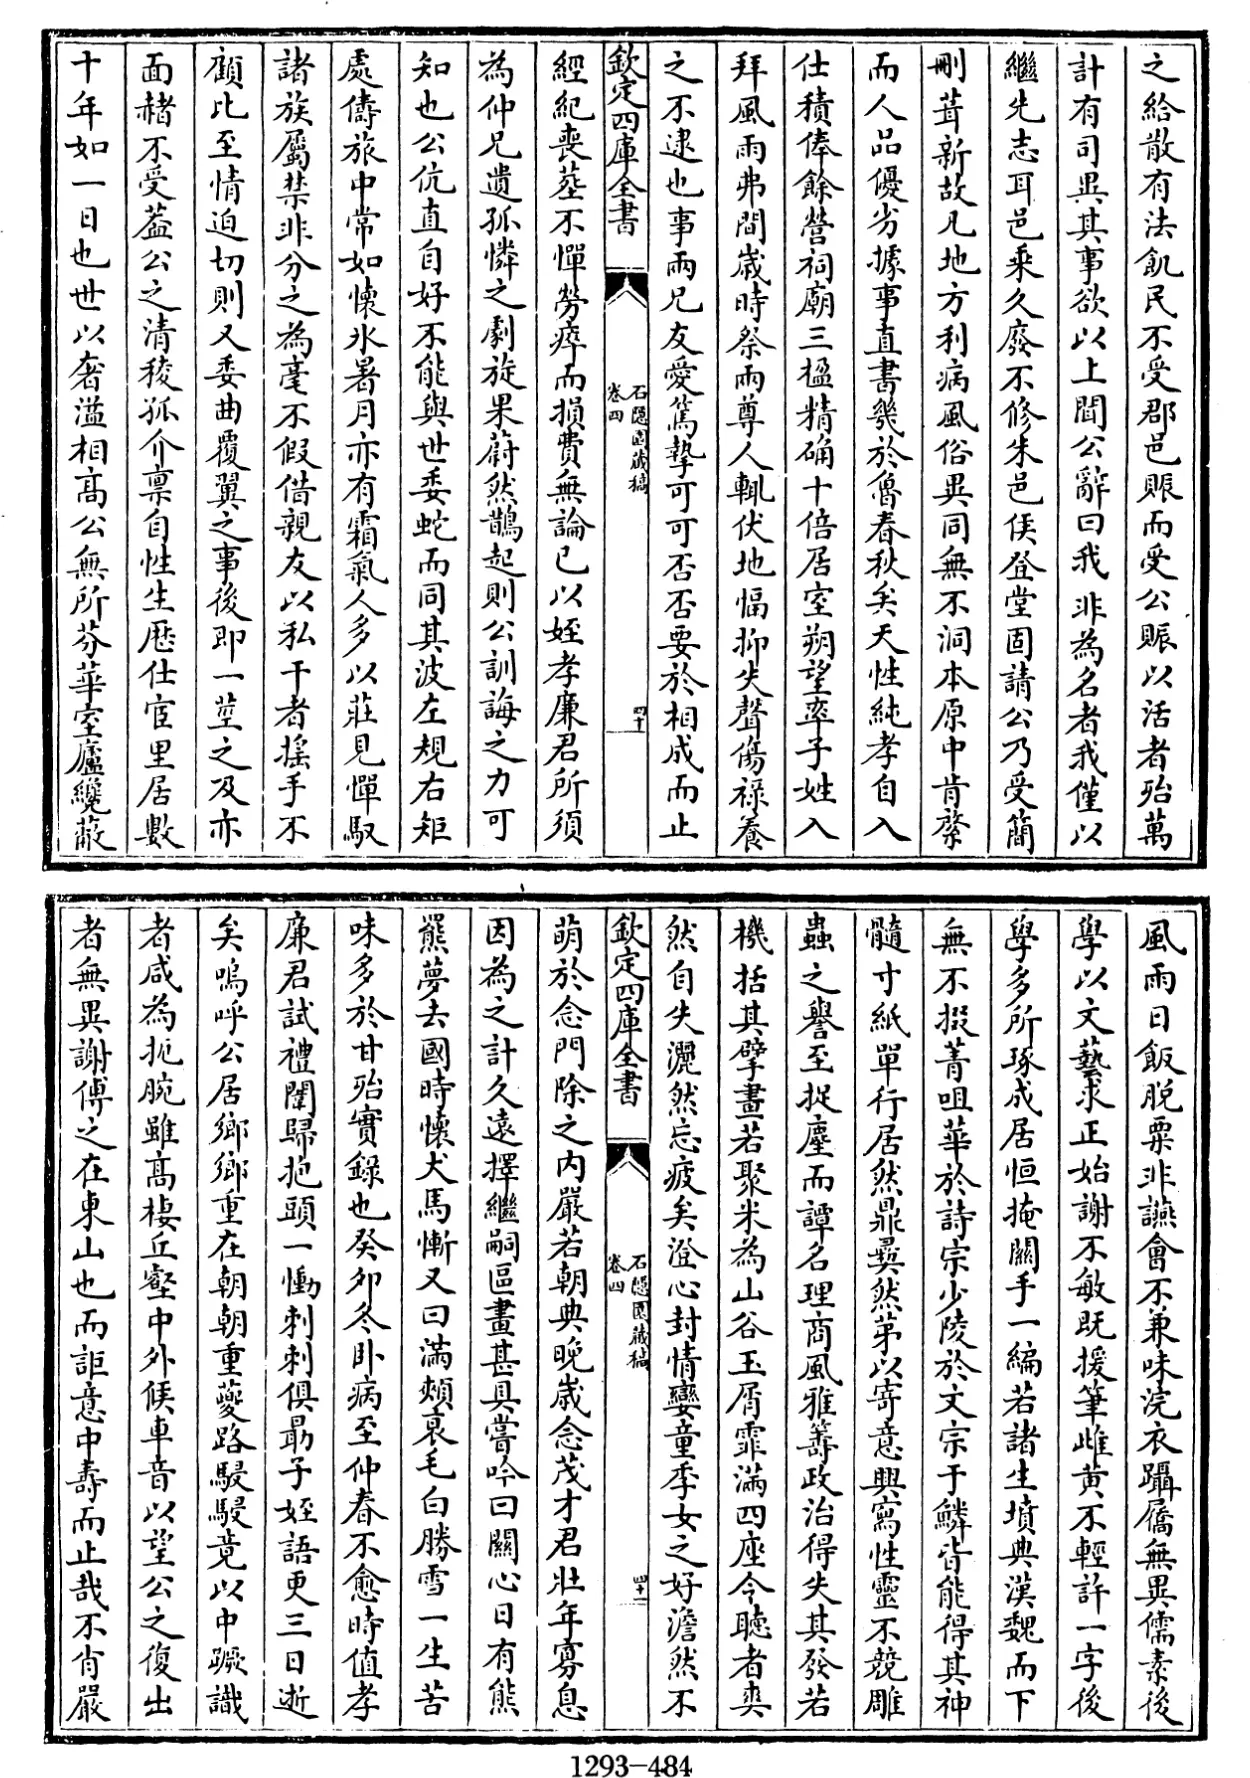 之給散有法飢民不受郡邑賑而受公賑以活者殆萬
計有司異其事欲以上聞公辭曰我非為名者我僅以
繼先志耳邑乘久廢不修朱邑侯登堂固請公乃受簡
刪葺新故凡地方利病風俗異同無不洞本原中肯綮
而人品優劣據事直書幾於魯春秋矣天性純孝自入
仕積俸餘營祠廟三楹精确十倍居室朔望率子姓入
拜風雨弗間歲時祭兩尊人輒伏地愊抑失聲傷祿養
之不逮也事兩兄友愛篤摯可可否否要於相成而止
欽定四庫全書
石隱園藏稿
卷四
四十
經紀喪塟不憚勞瘁而損費無論已以姪孝廉君所須
為仲兄遺孤憐之劇旋果蔚然鵲起則公訓誨之力可
知也公伉直自好不能與世委蛇而同其波左規右矩
處儔旅中常如懷氷暑月亦有霜氣人多以莊見憚馭
諸族屬禁非分之為毫不假借親友以私干者搖手不
顧比至情迫切則又委曲覆翼之事後即一莖之及亦
面赭不受葢公之清稜孤介禀自性生歷仕宦里居數
十年如一日也世以奢溢相高公無所芬華室廬纔蔽
風雨日飯脫粟非讌會不兼味浣衣躡屩無異儒素後
學以文藝求正始謝不敏既援筆雌黃不輕許一字後
學多所琢成居恒掩關手一編若諸生墳典漢魏而下
無不掇菁咀華於詩宗少陵於文宗于鱗皆能得其神
髓寸紙單行居然鼎彞然第以寄意興寫性靈不競雕
蟲之譽至捉麈而譚名理商風雅籌政治得失其發若
機括其擘畫若聚米為山谷玉屑霏滿四座令聽者爽
然自失灑然忘疲矣澄心封情孌童季女之好澹然不
欽定四庫全書
石隱園藏稿
卷四
四十一
萌於念門除之內嚴若朝典晚歲念茂才君壯年寡息
因為之計久遠擇繼嗣區畫甚具嘗吟曰關心日有熊
羆夢去國時懷犬馬慚又曰滿頰哀毛白勝雪一生苦
味多於甘殆實錄也癸卯冬卧病至仲春不愈時值孝
廉君試禮闈歸抱頭一慟刺刺俱勗子姪語更三日逝
矣嗚呼公居鄉鄉重在朝朝重夔路駸駸竟以中蹶識
者咸為扼腕雖高棲丘壑中外候車音以望公之復出
者無異謝傅之在東山也而詎意中壽而止哉不肖嚴
1293-484